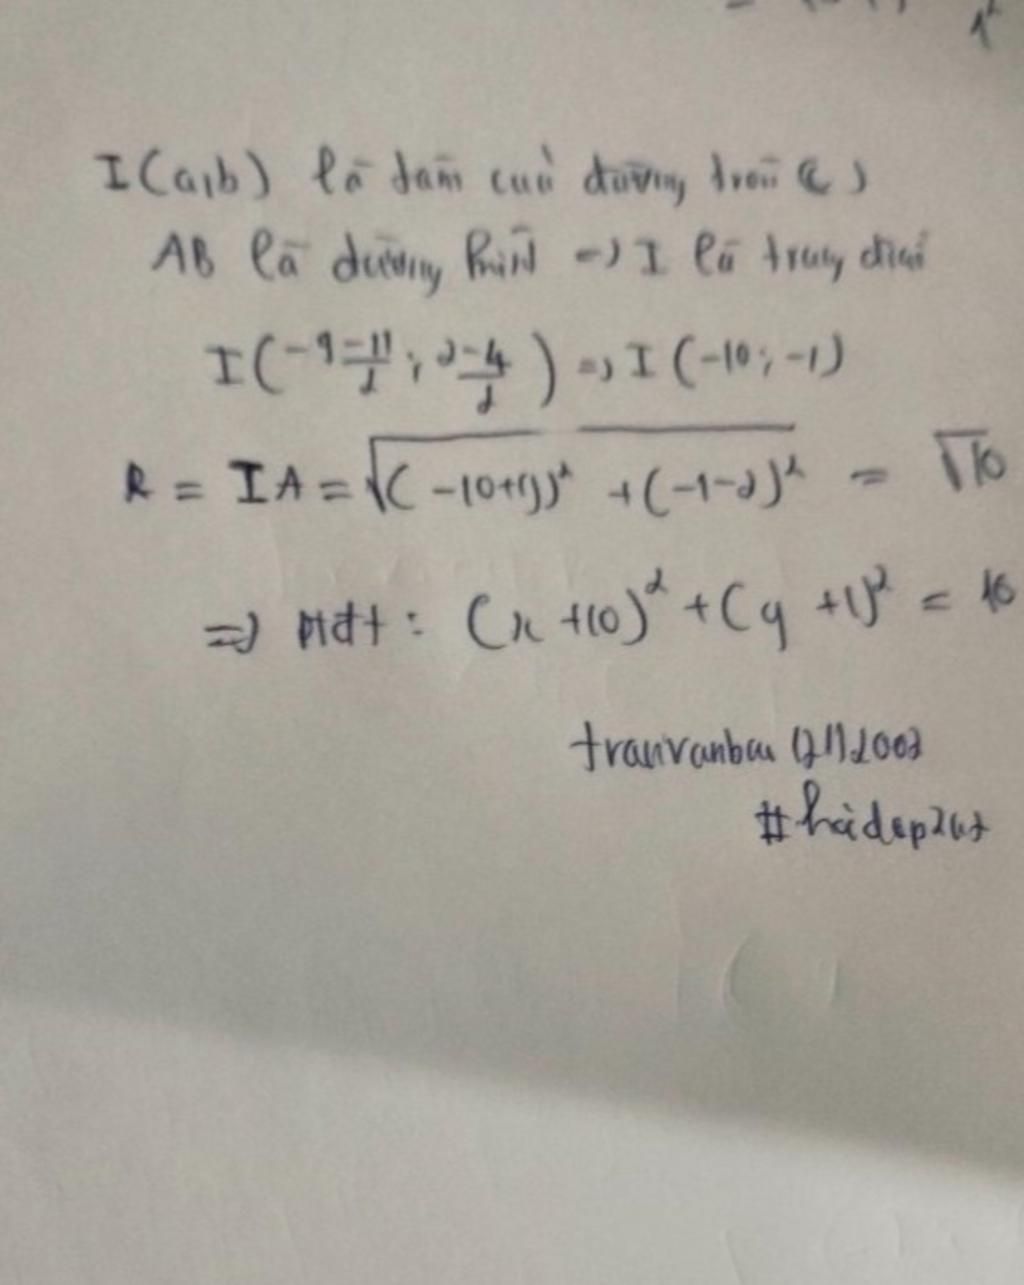 I(a,b) là tâm của đường tròn (C)
AB là đường kính => I là trung điểm
I(-9-11/2; 2-4/2) => I(-10; -1)
R = IA = √((-10+9)² + (-1-2)²) = √10
=> ptđt: (x+10)² + (y+1)² = 10
tranvanbau